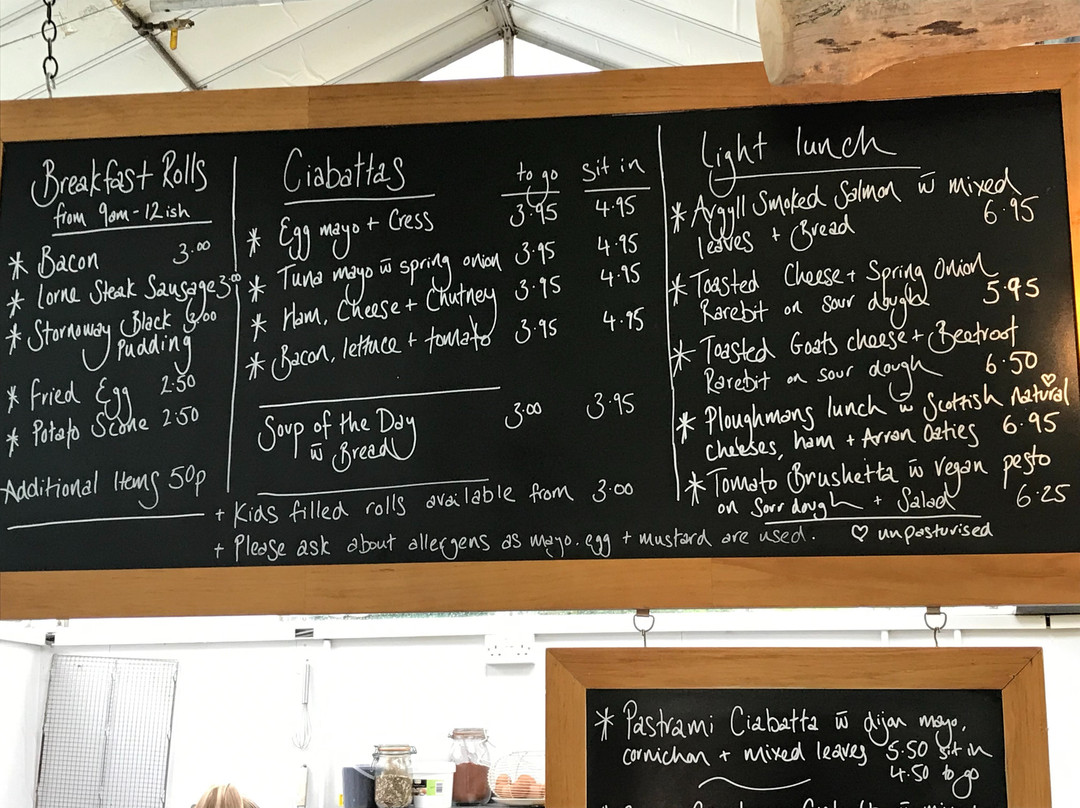 Breakfast Rolls
from 9am - 12ish
* Bacon 3.00
* Lorne Steak Sausage 3.00
* Stornoway Black 3.00
Pudding
* Fried Egg 2.50
* Potato Scone 2.50
Additional Items 50p
Ciabattas to go sit in
* Egg mayo + Cress 3.95 4.95
* Tuna mayo w̄ spring onion 3.95 4.95
* Ham, Cheese + Chutney 3.95 4.95
* Bacon, lettuce + tomato 3.95 4.95
Soup of the Day 3.00 3.95
w̄ Bread
+ Kids filled rolls available from 3.00
+ Please ask about allergens as mayo. egg + mustard are used.
Light lunch
* Argyll Smoked Salmon w̄ mixed
leaves + Bread 6.95
* Toasted Cheese + Spring Onion
Rarebit on sour dough 5.95
* Toasted Goats cheese + Beetroot
Rarebit on sour dough 6.50
* Ploughmans lunch w̄ Scottish natural ♡
cheeses, ham + Arran Oaties 6.95
* Tomato Brushetta w̄ vegan pesto
on Sour dough + Salad 6.25
♡ unpasturised
* Pastrami Ciabatta w̄ dijon mayo,
cornichon + mixed leaves 5.50 sit in
4.50 to go